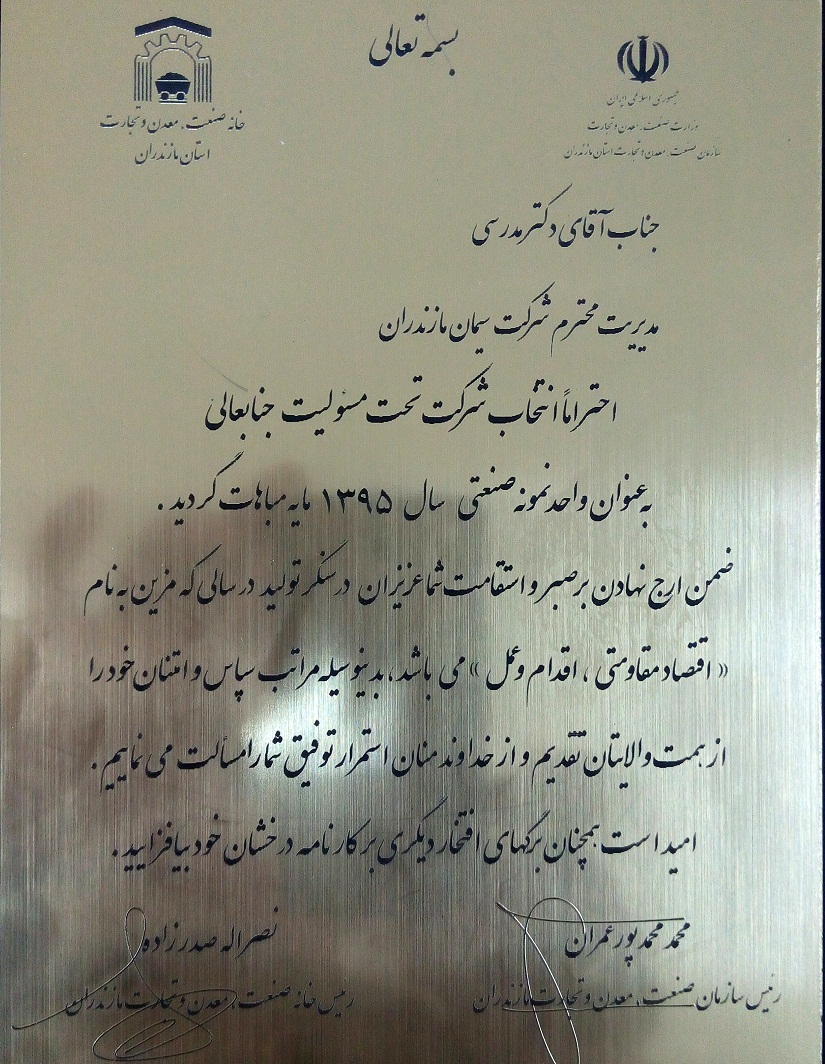 بسمه تعالی
جمهوری اسلامی ایران
وزارت صنعت، معدن و تجارت
سازمان صنعت، معدن و تجارت استان مازندران
خانه صنعت، معدن و تجارت
استان مازندران
جناب آقای دکتر مدرسی
مدیریت محترم شرکت سیمان مازندران
احتراماً انتخاب شرکت تحت مسئولیت جنابعالی
به عنوان واحد نمونه صنعتی سال ۱۳۹۵ مایه مباهات گردید.
ضمن ارج نهادن بر صبر و استقامت شما عزیزان در سنگر تولید در سالی که مزین به نام
«اقتصاد مقاومتی، اقدام و عمل» می باشد، بدینوسیله مراتب سپاس و امتنان خود را
از همت والایتان تقدیم و از خداوند منان استمرار توفیق شما را مسألت می نماییم.
امید است همچنان برگهای افتخار دیگری بر کارنامه درخشان خود بیافزایید.
محمد محمدپور عمران
رئیس سازمان صنعت، معدن و تجارت مازندران
نصراله صدرزاده
رئیس خانه صنعت، معدن و تجارت مازندران